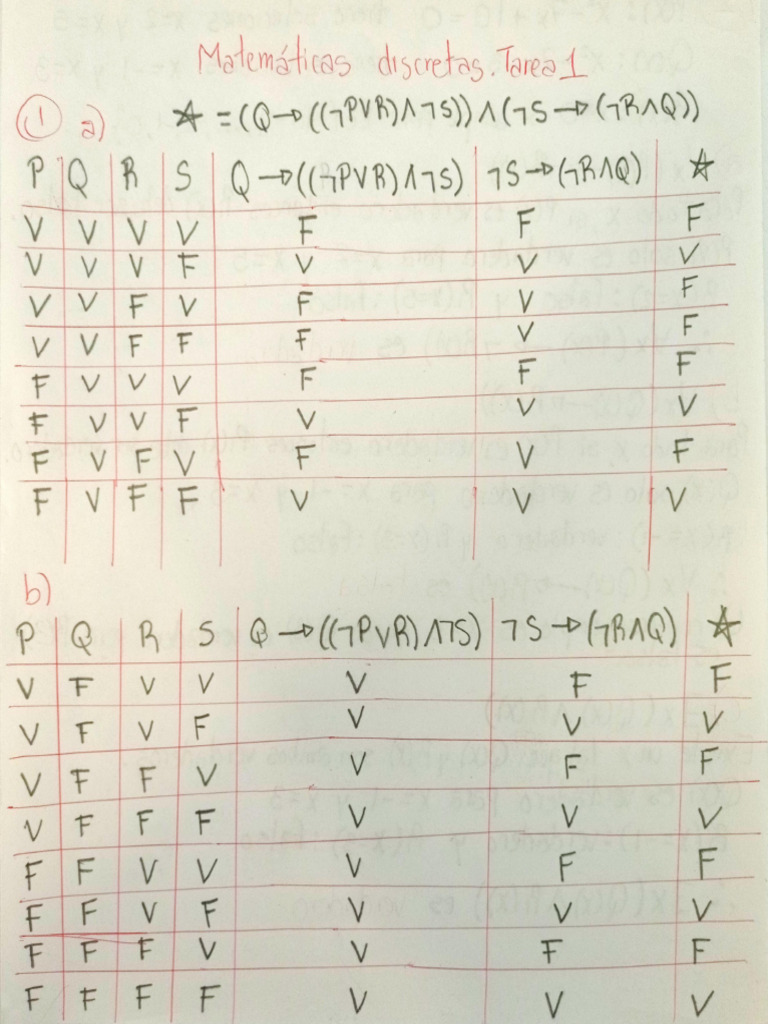 Matemáticas discretas. Tarea 1
① a) ☆ = (Q → ((¬P∨R)∧¬S)) ∧ (¬S → (¬R∧Q))
P Q R S Q → ((¬P∨R)∧¬S) ¬S → (¬R∧Q) ☆
V V V V F F F
V V V F V V V
V V F V F V F
V V F F F V F
F V V V F F F
F V V F V V V
F V F V F V F
F V F F V V V
b)
P Q R S Q → ((¬P∨R)∧¬S) ¬S → (¬R∧Q) ☆
V F V V V F F
V F V F V V V
V F F V V F F
V F F F V V V
F F V V V F F
F F V F V V V
F F F V V F F
F F F F V V V